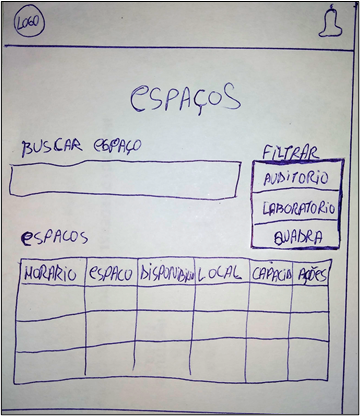 LOGO
ESPAÇOS
BUSCAR ESPAÇO
FILTRAR
AUDITORIO
LABORATORIO
QUADRA
ESPACOS
HORARIO ESPACO LOCAL AÇÕES